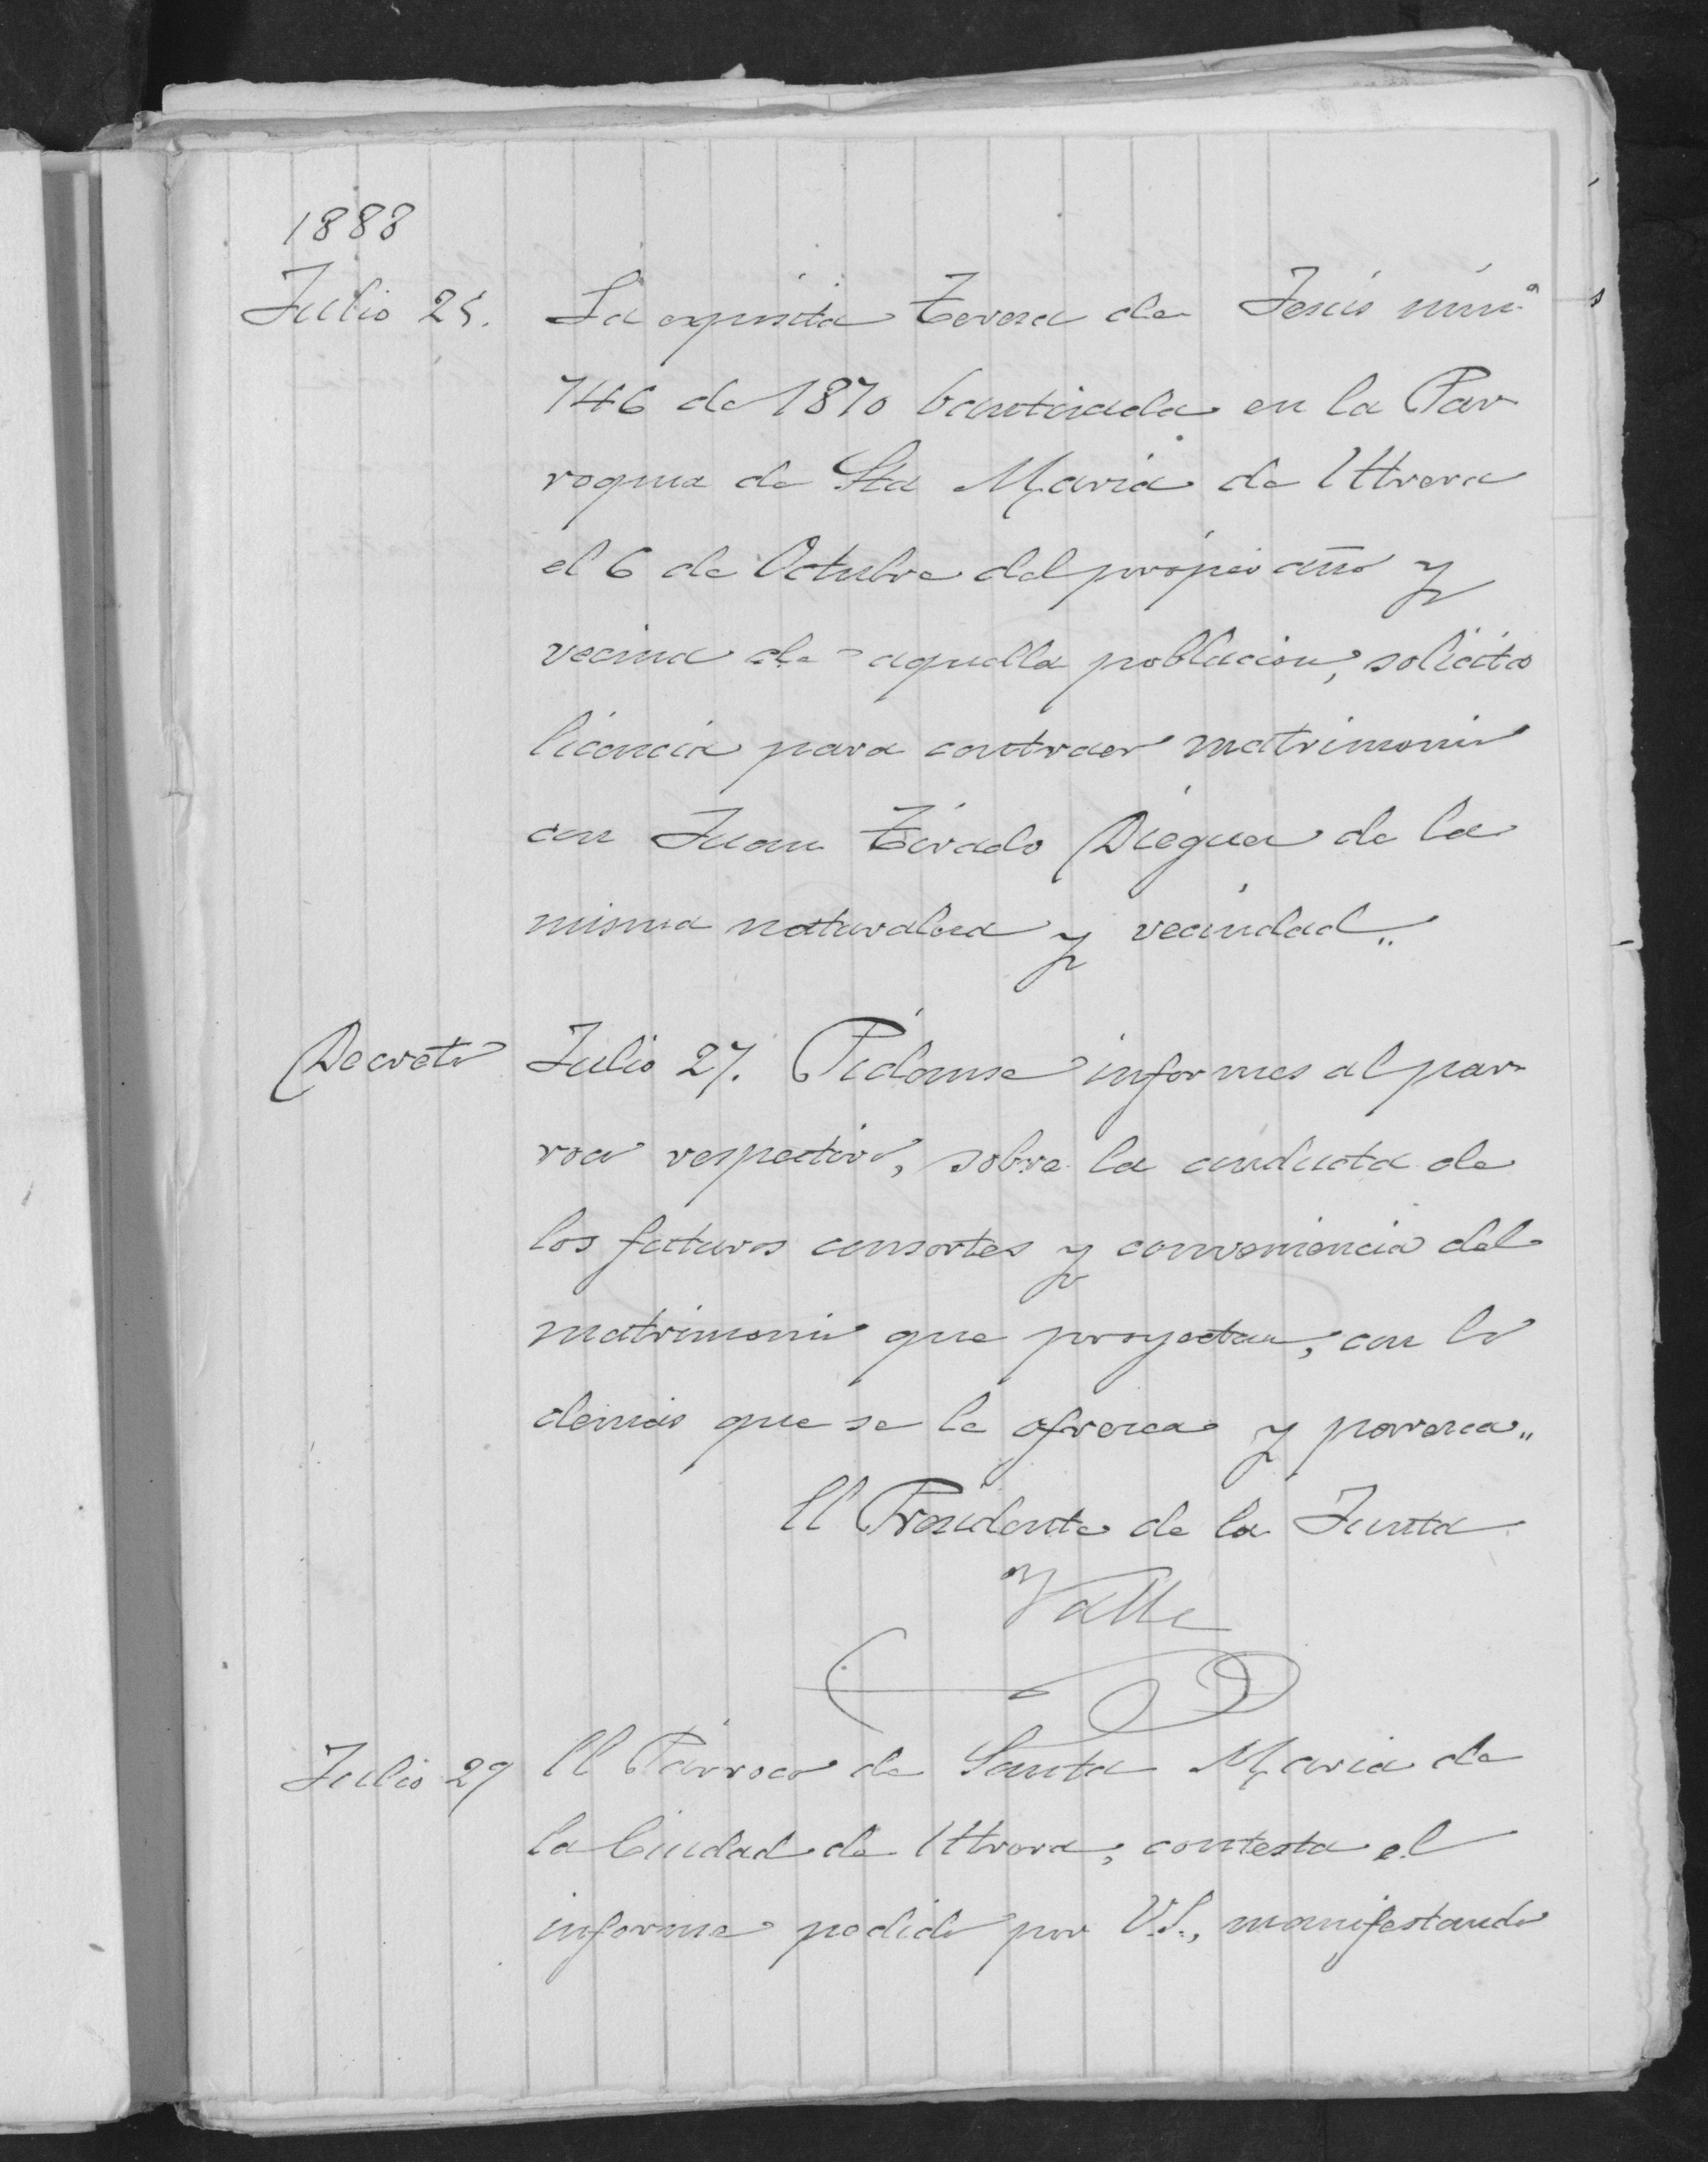 1888
Julio 25. La expósita Teresa de Jesús núm.º
746 de 1870 bautizada en la Par-
roquia de Sta Maria de Uttrera
el 6 de Octubre del propio año y
vecina de aquella poblacion, solicita
licencia para contraer matrimonio
con Juan Tirado Dieguez de la
misma naturaleza y vecindad"
Decreto Julio 27. Pidanse informes al par-
roco respectivo, sobre la conducta de
los futuros consortes y conveniencia del
matrimonio que proyectan, con lo
demás que se le ofrezca y parezca"
El Presidente de la Junta
Valle
Julio 29 El Párroco de Santa Maria de
la Ciudad de Uttrera, contesta el
informe pedido por V.S., manifestando